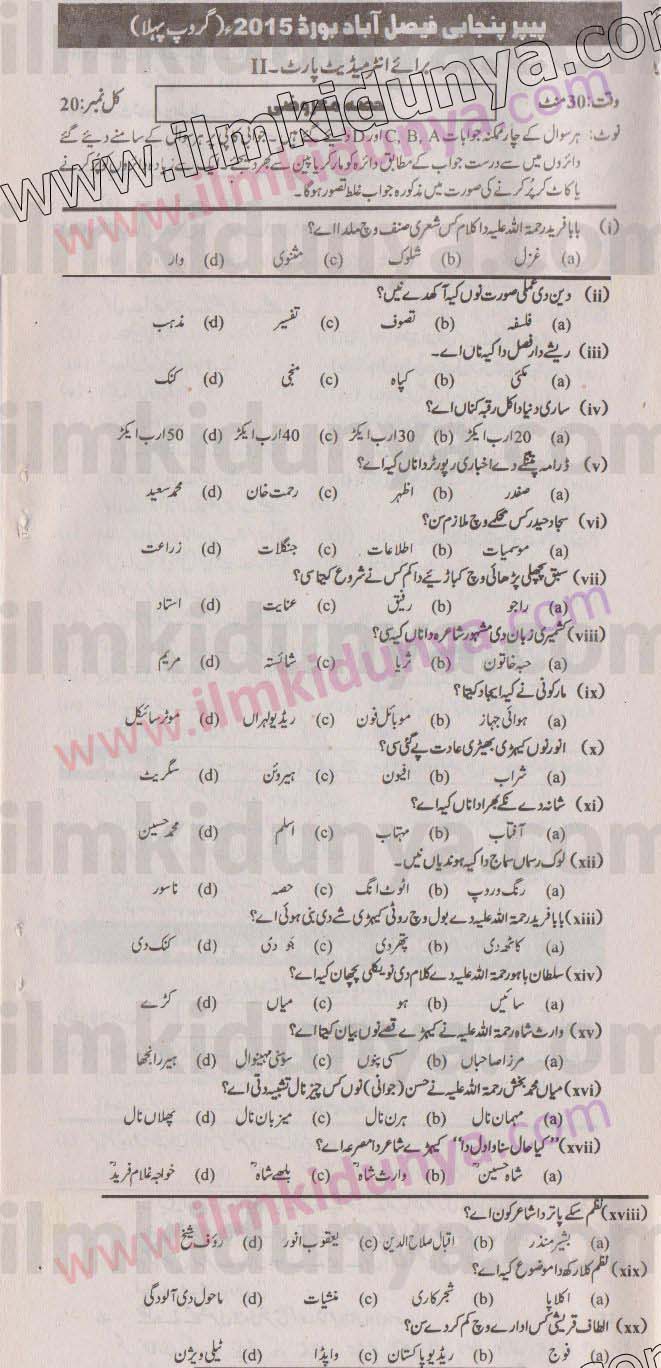 پیپر پنجابی فیصل آباد بورڈ 2015ء (گروپ پہلا)
برائے انٹرمیڈیٹ پارٹ۔II
وقت:30 منٹ کل نمبر:20
نوٹ: ہر سوال کے چار ممکنہ جوابات A ،B ،C اور D دیئے گئے
دائروں میں سے درست جواب کے مطابق دائرہ کو مارکر یا پین سے بھر
یا کاٹ کر پُر کرنے کی صورت میں مذکورہ جواب غلط تصور ہوگا۔
(i) بابا فرید رحمۃ اللہ علیہ دا کلام کس شعری صنف وچ ملدا اے؟
(a) غزل (b) شلوک (c) مثنوی (d) وار
(ii) دین دی عملی صورت نوں کیہ آکھدے نیں؟
(a) فلسفہ (b) تصوف (c) تفسیر (d) مذہب
(iii) ریشے دار فصل دا کیہ ناں اے۔
(a) مکئی (b) کپاہ (c) منجی (d) کنک
(iv) ساری دنیا دا کل رقبہ کناں اے؟
(a) 20 ارب ایکڑ (b) 30 ارب ایکڑ (c) 40 ارب ایکڑ (d) 50 ارب ایکڑ
(v) ڈرامہ پتنگے دے اخباری رپورٹر دا ناں کیہ اے؟
(a) صفدر (b) اظہر (c) رحمت خان (d) محمد سعید
(vi) سجاد حیدر کس محکمے وچ ملازم سن؟
(a) موسمیات (b) اطلاعات (c) جنگلات (d) زراعت
(vii) سبق پچھلی پڑھائی وچ کباڑیئے دا کم کس نے شروع کیتا سی؟
(a) راجو (b) رفیق (c) عنایت (d) استاد
(viii) کشمیری زبان دی مشہور شاعرہ دا ناں کیہ سی؟
(a) حبہ خاتون (b) ثریا (c) شائستہ (d) مریم
(ix) مارکونی نے کیہ ایجاد کیتا؟
(a) ہوائی جہاز (b) موبائل فون (c) ریڈیو لہراں (d) موٹر سائیکل
(x) انور نوں کیہڑی بھیڑی عادت پے گئی سی؟
(a) شراب (b) افیون (c) ہیروئن (d) سگریٹ
(xi) شانہ دے نکے بھرا دا ناں کیہ اے؟
(a) آفتاب (b) مہتاب (c) اسلم (d) محمد حسین
(xii) لوک رسماں سماج دا کیہ ہوندیاں نیں۔
(a) رنگ و روپ (b) اٹوٹ انگ (c) حصہ (d) ناسور
(xiii) بابا فرید رحمۃ اللہ علیہ دے بول وچ روٹی کیہڑی شے دی بنی ہوئی اے؟
(a) کاٹھ دی (b) پتھر دی (c) جَو دی (d) کنک دی
(xiv) سلطان باہو رحمۃ اللہ علیہ دے کلام دی نویکلی پچھان کیہ اے؟
(a) سائیں (b) ہو (c) میاں (d) کڑے
(xv) وارث شاہ رحمۃ اللہ علیہ نے کیہڑے قصے نوں بیان کیتا اے؟
(a) مرزا صاحباں (b) سسی پنوں (c) سوہنی مہینوال (d) ہیر رانجھا
(xvi) میاں محمد بخش رحمۃ اللہ علیہ نے حسن (جوانی) نوں کس چیز نال تشبیہ دتی اے؟
(a) مہمان نال (b) ہرن نال (c) میزبان نال (d) پھلاں نال
(xvii) "کیا حال سناواں دل دا" کیہڑے شاعر دا مصرعہ اے؟
(a) شاہ حسینؒ (b) وارث شاہؒ (c) بلھے شاہؒ (d) خواجہ غلام فریدؒ
(xviii) نظم سکے پاتر دا شاعر کون اے؟
(a) بشیر منذر (b) اقبال صلاح الدین (c) یعقوب انور (d) رؤف شیخ
(xix) نظم کلا رکھ دا موضوع کیہ اے؟
(a) اکلاپا (b) شجر کاری (c) منشیات (d) ماحول دی آلودگی
(xx) الطاف قریشی کس ادارے وچ کم کردے سن؟
(a) فوج (b) ریڈیو پاکستان (c) واپڈا (d) ٹیلی ویژن
www.ilmkidunya.com